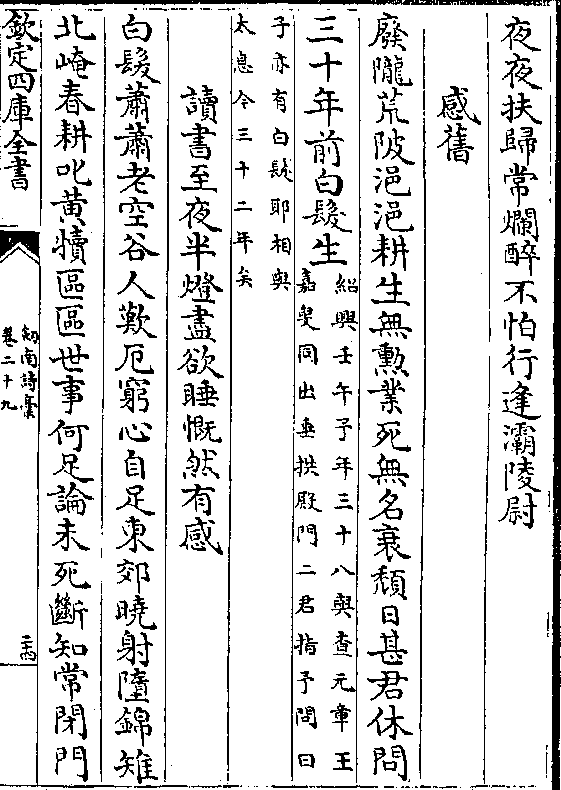 夜夜扶歸常爛醉不怕行逢灞陵尉
感舊
廢隴荒陂浥浥耕生無勲業死無名衰頽日甚君休問
三十年前白髮生
紹興壬午予年三十八與查元章王
嘉叟同出垂拱殿門二君指予問曰
子亦有白髭耶相與
太息今三十二年矣
讀書至夜半燈盡欲睡慨然有感
白髮蕭蕭老空谷人歎厄窮心自足東郊曉射墮錦雉
北崦春耕叱黃犢區區世事何足論未死斷知常閉門
欽定四庫全書
劍南詩藁
卷二十九